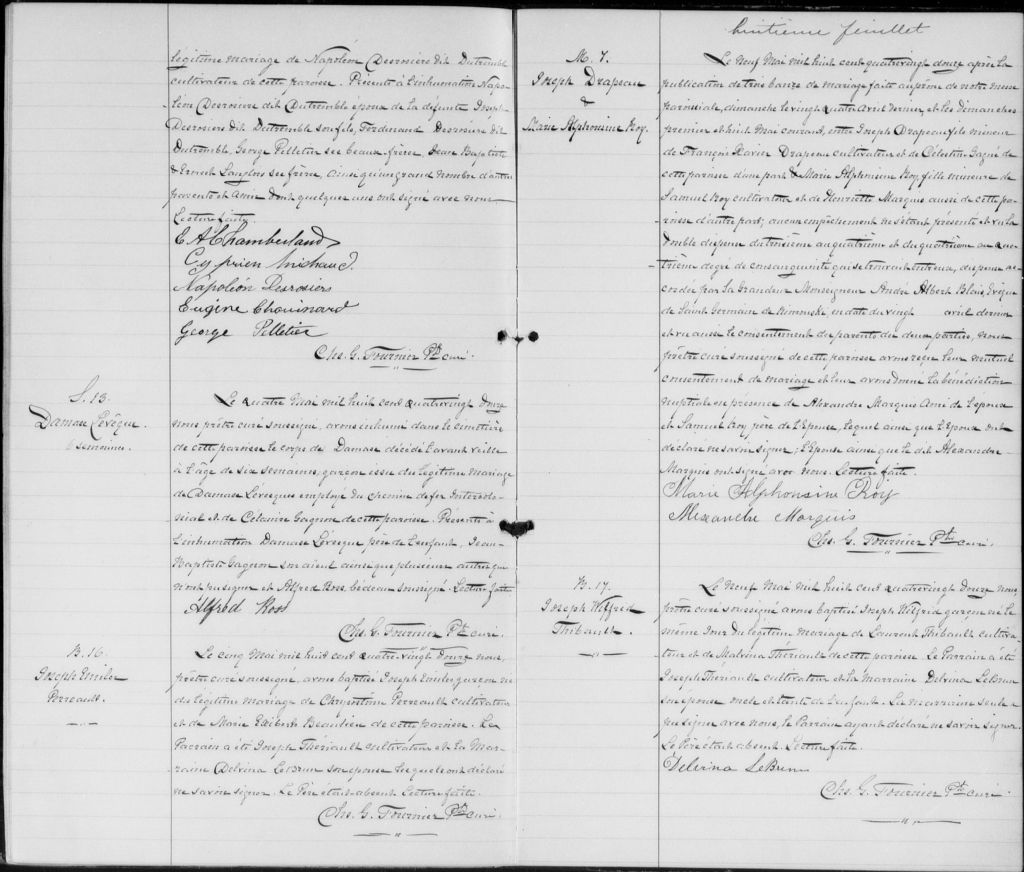 légitime mariage de Napoléon Desrosiers dit Dutremble
cultivateur de cette paroisse. Présents à l'inhumation Napo-
léon Desrosiers dit Dutremble époux de la défunte Joseph
Desrosiers dit Dutremble son fils, Ferdinand Desrosiers dit
Dutremble, George Pelletier ses beaux-frères, Jean Baptiste
& Ernest Langlois ses frères, ainsi qu'un grand nombre d'autres
parents et amis dont quelques uns ont signé avec nous
Lecture faite
E. A. Chamberland
Cyprien Michaud.
Napoléon Desrosiers
Eugène Chouinard
George Pelletier
Chs. G. Fournier Ptre curé.
S. 13.
Damase Lévêque.
6 semaines.
Le quatre Mai mil huit cent quatrevingt douze
nous prêtre curé soussigné, avons inhumé dans le cimetière
de cette paroisse le corps de Damase décédé l'avant veille
à l'âge de six semaines, garçon issu du légitime mariage
de Damase Lévesque employé du chemin de fer Intercolo-
nial et de Célanire Gagnon de cette paroisse. Présents à
l'inhumation Damase Lévesque père de l'enfant, Jean-
Baptiste Gagnon son aïeul ainsi que plusieurs autres qui
n'ont pu signer et Alfred Ross bedeau soussigné. Lecture faite
Alfred Ross
Chs. G. Fournier Ptre curé.
B. 16.
Joseph Emile
Perreault.
Le cinq Mai mil huit cent quatre-vingt douze nous,
prêtre curé soussigné, avons baptisé Joseph Emile garçon né
du légitime mariage de Chrysostôme Perreault cultivateur
et de Marie Beaulieu de cette paroisse. Le
Parrain a été Joseph Thériault cultivateur et la Mar-
raine Delvina LeBrun son épouse lesquels ont déclaré
ne savoir signer. Le Père était absent. Lecture faite.
Chs. G. Fournier Ptre curé.
huitième feuillet
M. 7.
Joseph Drapeau
&
Marie Alphonsine Roy.
Le neuf Mai mil huit cent quatrevingt douze après la
publication de trois bans de mariage faite au prône de notre messe
paroissiale, dimanche le vingt quatre Avril dernier, et les dimanches
premier et huit Mai courant, entre Joseph Drapeau fils mineur
de François Xavier Drapeau cultivateur et de Célestine Gagné de
cette paroisse d'une part & Marie Alphonsine Roy fille mineure de
Samuel Roy cultivateur et de Henriette Marquis aussi de cette pa-
roisse d'autre part; aucun empêchement ne s'étant présenté et vu la
double dispense du troisième au quatrième et du quatrième au qua-
trième degré de consanguinité qui se trouvait entr'eux, dispense ac-
cordée par Sa Grandeur Monseigneur André Albert Blais, Evêque
de Saint Germain de Rimouski, en date du vingt avril dernier
et vu aussi le consentement de parents des deux parties, nous
prêtre curé soussigné de cette paroisse avons reçu leur mutuel
consentement de mariage et leur avons donné la bénédiction
nuptiale en présence de Alexandre Marquis Ami de l'époux
et Samuel Roy père de l'Epouse, lequel ainsi que l'Epoux ont
déclaré ne savoir signer; l'Epouse ainsi que le dit Alexandre
Marquis ont signé avec nous. Lecture faite.
Marie Alphonsine Roy
Alexandre Marquis
Chs. G. Fournier Ptre curé.
B. 17.
Joseph Wilfrid
Thibault.
Le neuf Mai mil huit cent quatrevingt douze nous
prêtre curé soussigné avons baptisé Joseph Wilfrid garçon né le
même jour du légitime mariage de Laurent Thibault cultiva-
teur et de Malvina Thériault de cette paroisse. Le Parrain a été
Joseph Thériault cultivateur et la Marraine Delvina LeBrun
son épouse oncle et tante de l'enfant. La marraine seule a
pu signer avec nous, le Parrain ayant déclaré ne savoir signer.
Le Père était absent. Lecture faite.
Delvina LeBrun
Chs. G. Fournier Ptre curé.